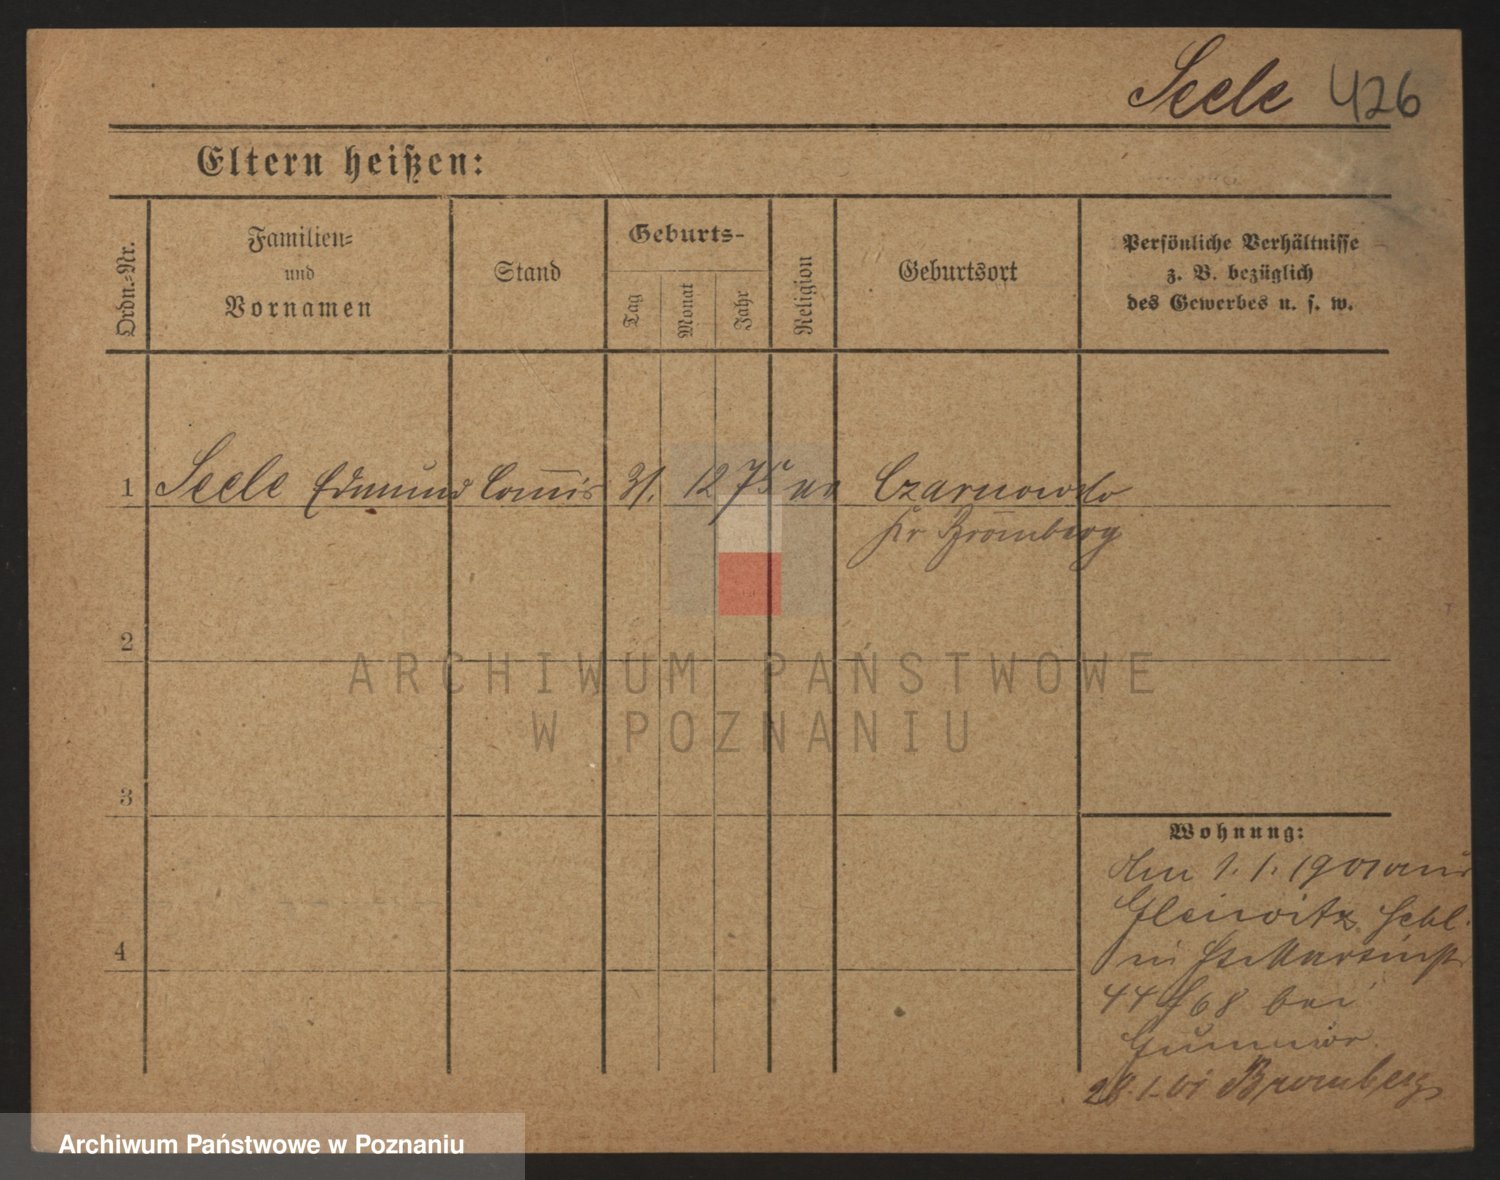 Seele 426
Eltern heißen:
Ordn.-Nr.
Familien-
und
Vornamen
Stand
Geburts-
Tag
Monat
Jahr
Religion
Geburtsort
Persönliche Verhältnisse
z. B. bezüglich
des Gewerbes u. s. w.
1 Seele Edmund Com̅is 31. 12 75 Czarnowko
Kr Brom̅berg
2
3
4
Wohnung:
Am 1. 1. 1901 aus
Gleiwitz Schl.
in St. Martinstr
44/68 bei
28.1.01 Bromberg
ARCHIWUM PAŃSTWOWE
W POZNANIU
Archiwum Państwowe w Poznaniu